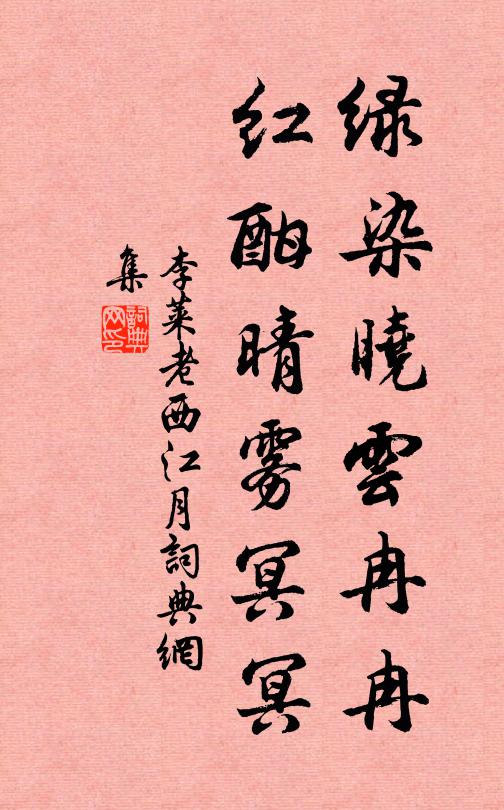 绿染曉雲冉冉
红酣晴雾冥冥
李莱老西江月詞典網
集
詞典网印